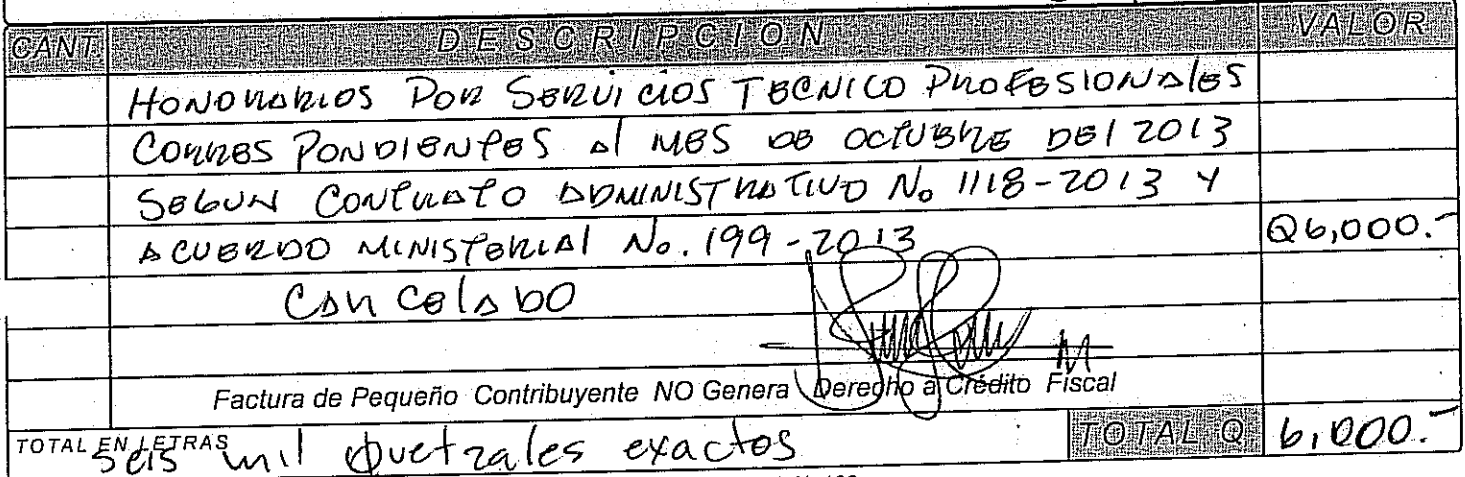 CANT. DESCRIPCION VALOR
HONORARIOS POR SERVICIOS TECNICO PROFESIONALES
CORRESPONDIENTES Al MES DE OCTUBRE DEl 2013
SEGUN CONTRATO ADMINISTRATIVO No 1118-2013 Y
ACUERDO MINISTERIAl No. 199-2013 Q6,000.-
CANCELADO
Factura de Pequeño Contribuyente NO Genera Derecho a Crédito Fiscal
TOTAL EN LETRAS seis mil Quetzales exactos TOTAL Q. 6,000.-